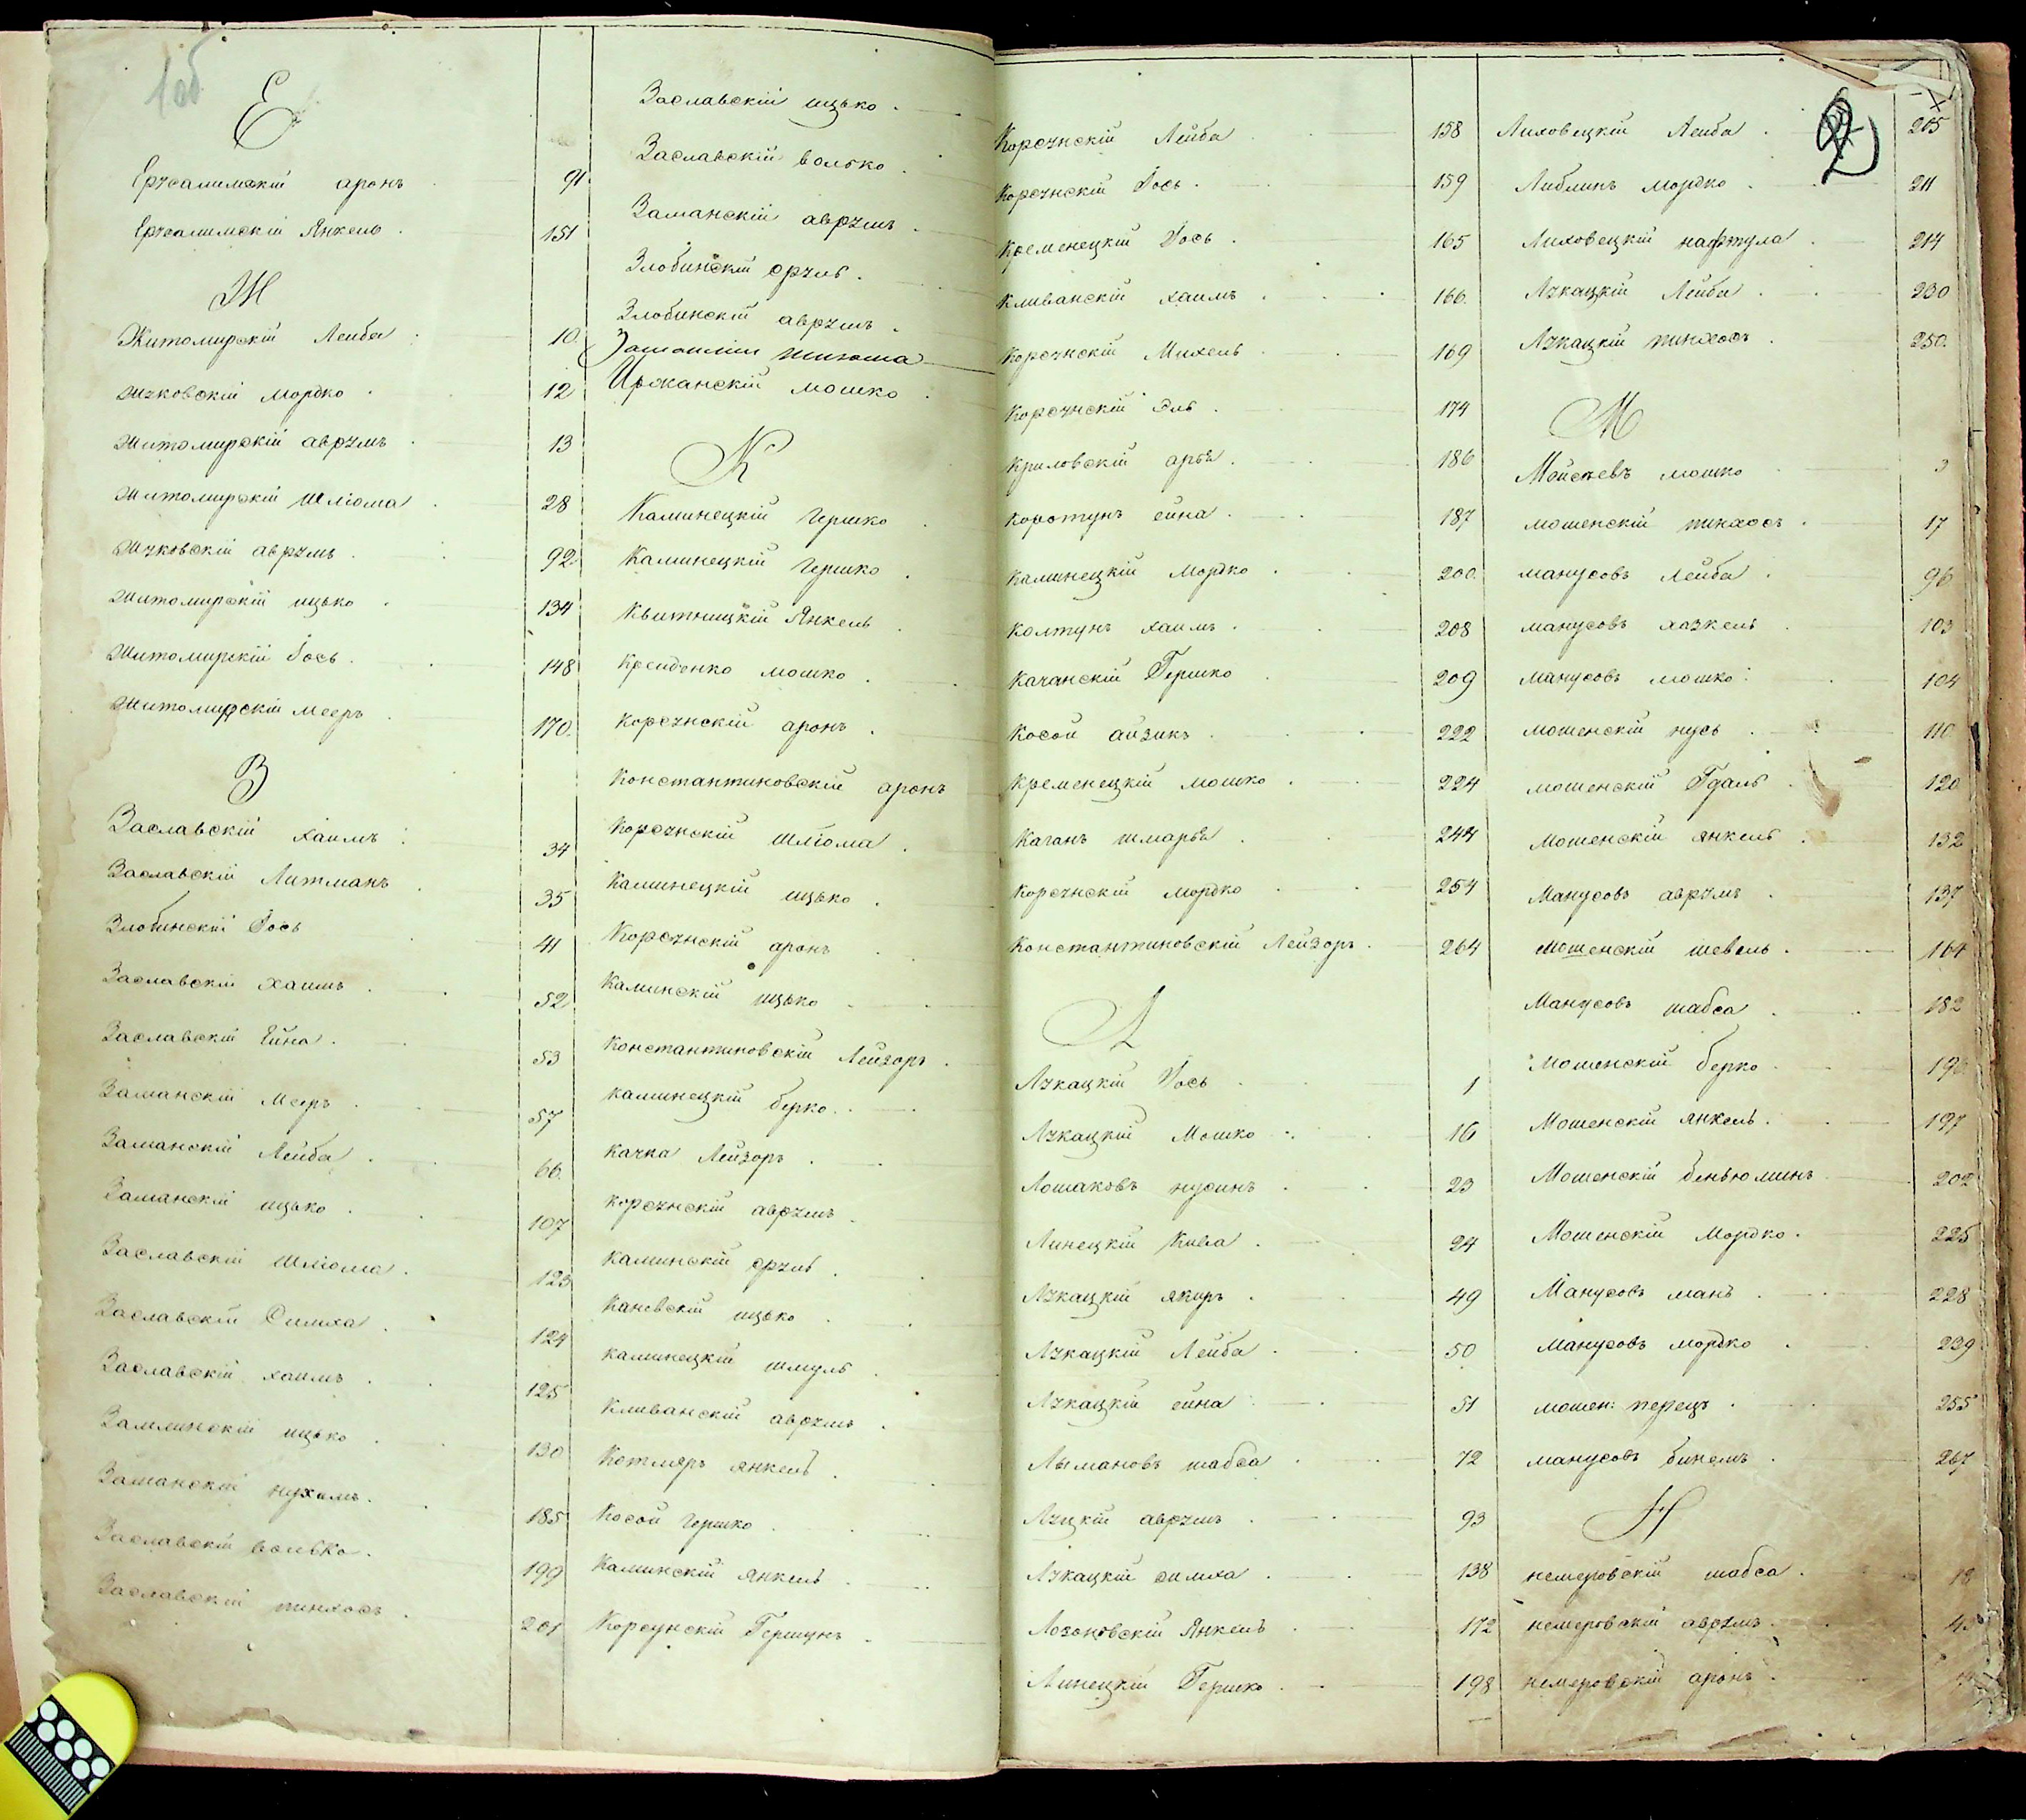 1об
Е
Ерусалимскій аронъ 91
Ерусалимскій Янкель 151
Ж
Житомирскій Леиба 10
Жуковскій Мордко 12
Житомирскій аврумъ 13
Житомирскій Шліома 28
Жуковскій аврумъ 92
Житомирскій ицько 134
Житомирскій Іось 148
Житомирскій Мееръ 170
З
Заславскій хаимъ 34
Заславскій Литманъ 35
Злобинскій Іось 41
Заславскій Хаимъ 52
Заславскій Ейна 53
Заманскій Мееръ 57
Заманскій Лейба 66
Заманскій ицько 107
Заславскій Шліома 123
Заславскій Симха 124
Заславскій хаимъ 125
ицько 130
Заманскій нухимъ 185
Заславскій волько 199
Заславскій пинхосъ 201
Заславскій ицько
Заславскій волько
Заманскій аврумъ
Злобинскій сруль
Злобинскій аврумъ
шліома
Иржанскій мошко
К
Каминецкій Гершко
Каминецкій Гершко
Квитницкій Янкель
мошко
Корсунскій аронъ
Константиновскій аронъ
Корсунскій шліома
Каминецкій ицько
Корсунскій аронъ
Каминскій ицько
Константиновскій Лейзоръ
Каминецкій берко
Качка Лейзоръ
Корсунскій аврумъ
Каминскій сруль
Каневскій ицько
Каминецкій шмуль
Кливанскій аврумъ
Котляръ янкель
Косой гершко
Каминскій янкель
Корсунскій Гершунъ
Корсунскій Лейба 158
Корсунскій Іось 159
Кременецкій Іось 165
Кливанскій хаимъ 166
Корсунскій Михель 169
Корсунскій Эль 174
Криловскій арья 186
Коротунъ ейна 187
Каминецкій Мордко 200
Колтунъ хаимъ 208
Качанскій Гершко 209
Косой айзикъ 222
Кременецкій мошко 224
Каганъ шмарья 244
Корсунскій мордко 254
Константиновскій Лейзоръ 264
Л
Лукацкій Іось 1
Лукацкій Мошко 16
Лошаковъ нусинъ 23
Линецкій Кива 24
Лукацкій якиръ 49
Лукацкій Лейба 50
Лукацкій ейна 51
Лымановъ шабса 72
Луцкій аврумъ 93
Лукацкій симха 138
Лозоновскій Янкель 172
Линецкій Гершко 198
2
Лиховецкій Лейба 205
Либлинъ мордко 211
Лиховецкій нафтула 214
Лукацкій Лейба 230
Лукацкій пинхосъ 250
М
Мойсѣевъ мошко 3
мошенскій пинхосъ 17
манусовъ Лейба 96
манусовъ хазкель 103
манусовъ мошко 104
мошенскій нусь 110
мошенскій Гдаль 120
Мошенскій янкель 132
Манусовъ аврумъ 137
Мошенскій шевель 164
Манусовъ шабса 182
Мошенскій берко 196
Мошенскій янкель 197
Мошенскій беньюминъ 202
Мошенскій Мордко 225
Манусовъ мань 228
Манусовъ мордко 239
мошен: перецъ 255
манусовъ бинемъ 267
Н
немеровскій шабса 18
немеровскій аврумъ
немеровскій аронъ